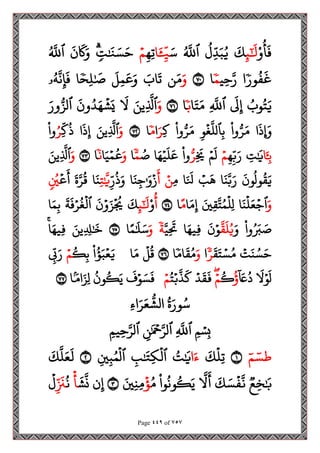 فَأُو۟لَـٰٓئِكَ يُبَدِّلُ ٱللَّهُ سَيِّـَٔاتِهِمْ حَسَنَـٰتٍ ۗ وَكَانَ ٱللَّهُ
غَفُورًا رَّحِيمًا ٧٠ وَمَن تَابَ وَعَمِلَ صَـٰلِحًا فَإِنَّهُۥ
يَتُوبُ إِلَى ٱللَّهِ مَتَابًا ٧١ وَٱلَّذِينَ لَا يَشْهَدُونَ ٱلزُّورَ
وَإِذَا مَرُّوا۟ بِٱللَّغْوِ مَرُّوا۟ كِرَامًا ٧٢ وَٱلَّذِينَ إِذَا ذُكِّرُوا۟
بِـَٔايَـٰتِ رَبِّهِمْ لَمْ يَخِرُّوا۟ عَلَيْهَا صُمًّا وَعُمْيَانًا ٧٣ وَٱلَّذِينَ
يَقُولُونَ رَبَّنَا هَبْ لَنَا مِنْ أَزْوَٰجِنَا وَذُرِّيَّـٰتِنَا قُرَّةَ أَعْيُنٍ
وَٱجْعَلْنَا لِلْمُتَّقِينَ إِمَامًا ٧٤ أُو۟لَـٰٓئِكَ يُجْزَوْنَ ٱلْغُرْفَةَ بِمَا
صَبَرُوا۟ وَيُلَقَّوْنَ فِيهَا تَحِيَّةً وَسَلَـٰمًا ٧٥ خَـٰلِدِينَ فِيهَا ۚ
حَسُنَتْ مُسْتَقَرًّا وَمُقَامًا ٧٦ قُلْ مَا يَعْبَؤُا۟ بِكُمْ رَبِّى
لَوْلَا دُعَآؤُكُمْ ۖ فَقَدْ كَذَّبْتُمْ فَسَوْفَ يَكُونُ لِزَامًۢا ٧٧
سُورَةُ الشُّعَرَاءِ
بِسْمِ ٱللَّهِ ٱلرَّحْمَـٰنِ ٱلرَّحِيمِ
طسٓمٓ ١ تِلْكَ ءَايَـٰتُ ٱلْكِتَـٰبِ ٱلْمُبِينِ ٢ لَعَلَّكَ
بَـٰخِعٌ نَّفْسَكَ أَلَّا يَكُونُوا۟ مُؤْمِنِينَ ٣ إِن نَّشَأْ نُنَزِّلْ
Page ٤٤٩ of ٧٥٧